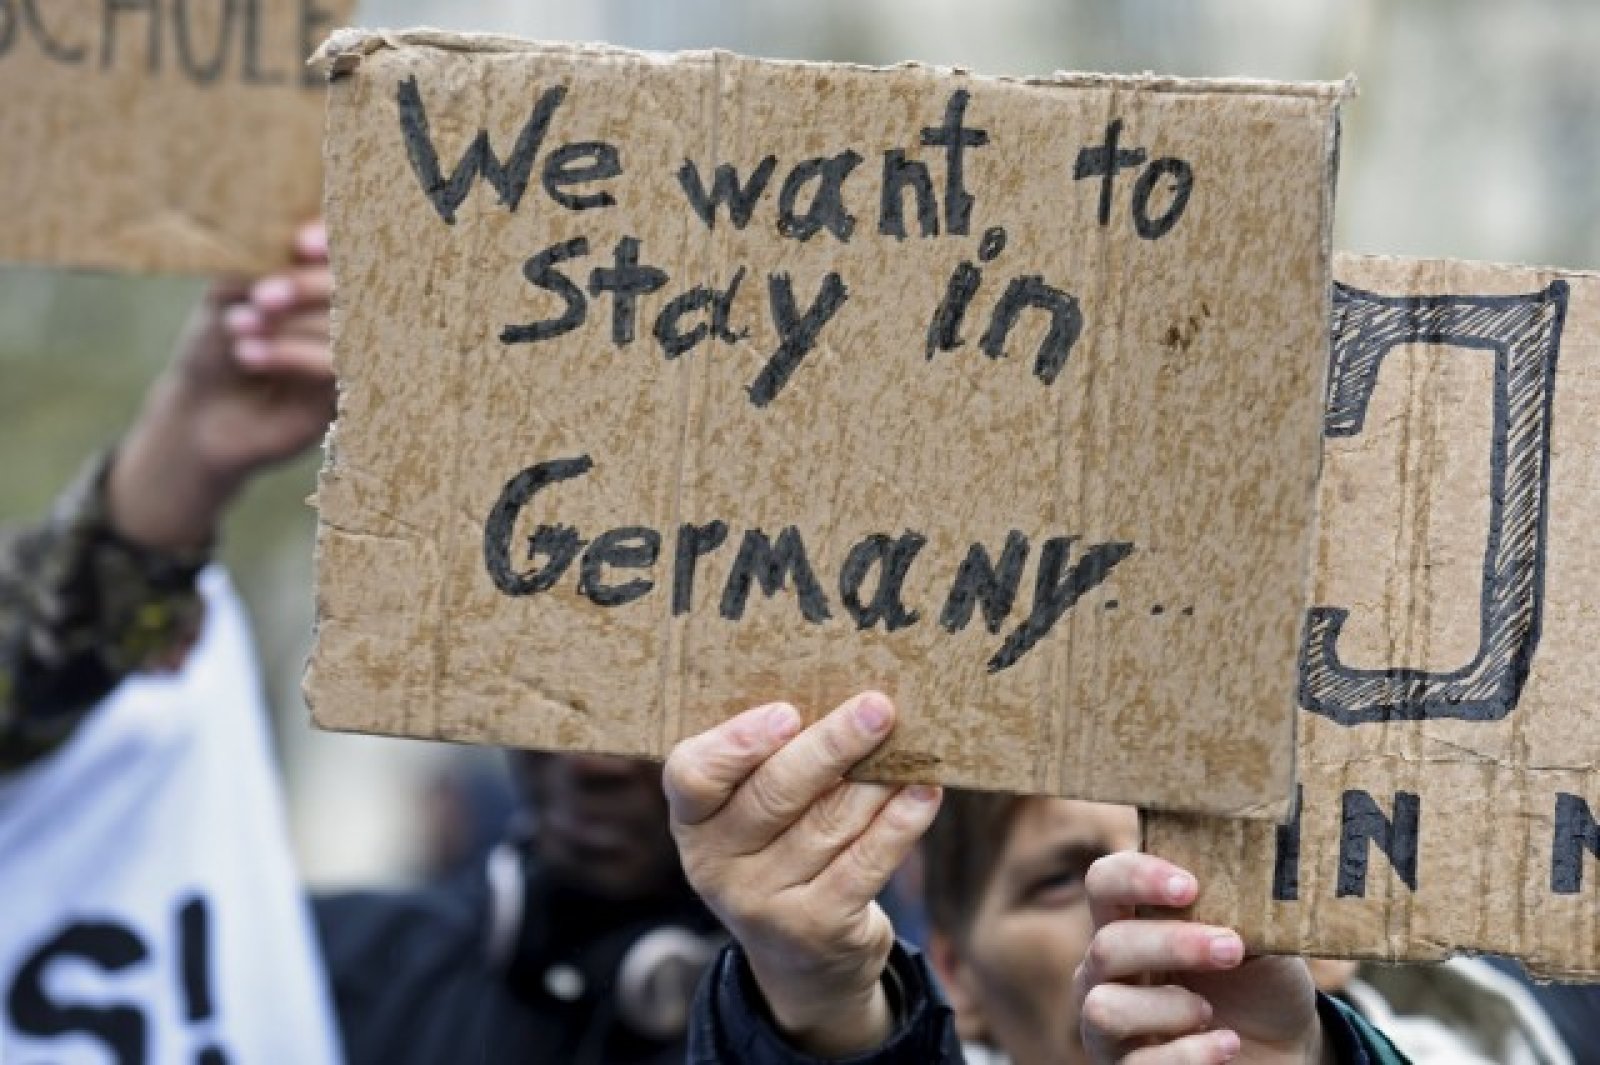 SCHULE
We want to
Stay in
Germany...
IN
S!